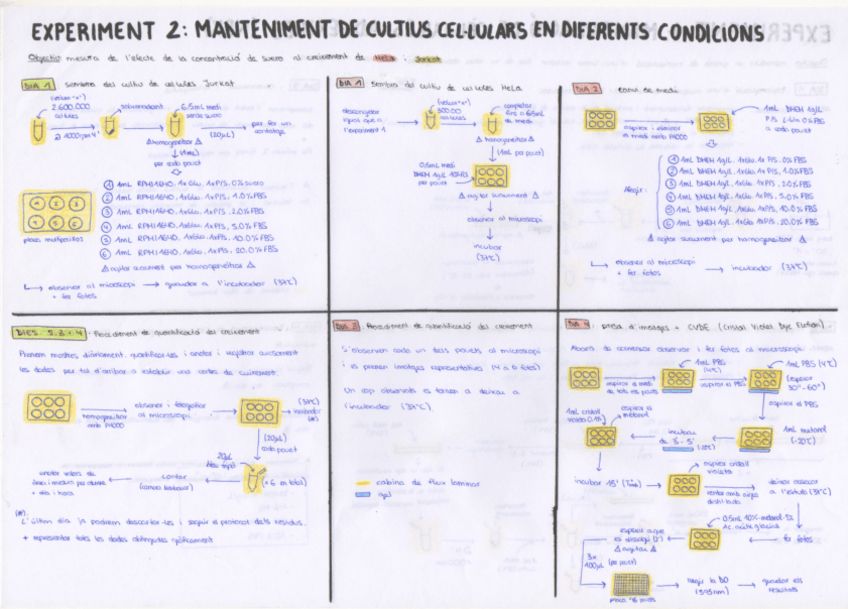 EXPERIMENT 2: MANTENIMENT DE CULTIUS CEL·LULARS EN DIFERENTS CONDICIONS
Objectiu: mesura de l'efecte de la concentració de suero al creixement de HeLa i Jurkat
DIA 1 sembra del cultiu de cèl·lules Jurkat
(volum "x")
2.600.000
cèl·lules
sobrenedant
6.5ml medi
sense suero
per fer un
contatge
(20µL)
Δ homogeneitzar Δ
(1mL)
per cada pouet
① 1mL RPMI1640, 1xGlu, 1xP/S, 0% suero
② 1mL RPMI1640, 1xGlu, 1xP/S, 1.0% FBS
③ 1mL RPMI1640, 1xGlu, 1xP/S, 2.0% FBS
④ 1mL RPMI1640, 1xGlu, 1xP/S, 5.0% FBS
⑤ 1mL RPMI1640, 1xGlu, 1xP/S, 10.0% FBS
⑥ 1mL RPMI1640, 1xGlu, 1xP/S, 20.0% FBS
placa multipouets
Δ agitar suaument per homogeneitzar Δ
observar al microscopi
+ fer fotos
guardar a l'incubador (37ºC)
DIA 1 sembra del cultiu de cèl·lules HeLa
descongelar
igual que a
l'experiment 1
(volum "x")
300.000
cèl·lules
completar
fins a 6.5mL
de medi
Δ homogeneitzar Δ
(1mL per pouet)
0.5mL medi
DMEM 1g/L 10% FBS
per pouet
Δ agitar suaument Δ
observar al microscopi
incubar
(37ºC)
DIA 2 canvi de medi
aspirar i eliminar
el medi amb P1000
1mL DMEM 1g/L
P/S 1xGlu 0% FBS
a cada pouet
Afegir:
① 1mL DMEM 1g/L, 1xGlu, 1xP/S, 0% FBS
② 1mL DMEM 1g/L, 1xGlu, 1xP/S, 1.0% FBS
③ 1mL DMEM 1g/L, 1xGlu, 1xP/S, 2.0% FBS
④ 1mL DMEM 1g/L, 1xGlu, 1xP/S, 5.0% FBS
⑤ 1mL DMEM 1g/L, 1xGlu, 1xP/S, 10.0% FBS
⑥ 1mL DMEM 1g/L, 1xGlu, 1xP/S, 20.0% FBS
Δ agitar suaument per homogeneitzar Δ
observar al microscopi
+ fer fotos
incubador (37ºC)
DIES 2, 3 i 4: Procediment de quantificació del creixement
Prenem mostres diàriament, quantificar-les i anotar i registrar acuradament
les dades per tal d'arribar a establir una corba de creixement.
homogeneitzar
amb P1000
observar i fotografiar
al microscopi
(37ºC)
incubador
(*)
(20µL)
cada pouet
20µL
blau tripà
(x6 en total)
contar
(càmera Neubauer)
+ dia i hora
(*):
L'últim dia ja podrem descartar-les i seguir el protocol dels residus.
+ representar totes les dades obtingudes gràficament
DIA 3 Procediment de quantificació del creixement
S'observen cada un dels pouets al microscopi
i es prenen imatges representatives (4 a 6 fotos)
Un cop observats es tornen a deixar a
l'incubador (37ºC)
cabina de flux laminar
gel
DIA 4: presa d'imatges + CVDE (Cristal Violet Dye Elution)
Abans de començar observar i fer fotos al microscopi:
aspirar el medi
de tots els pouets
1mL PBS
(4ºC)
aspirar el PBS
1mL PBS (4ºC)
(esperar
30"-60")
aspirar el PBS
1mL metanol
(-20ºC)
incubar
de 3'-5'
aspirar el
metanol
1mL cristall
violeta 0.1%
incubar 15' (Tª amb)
aspirar cristall
violeta
rentar amb aigua
destil·lada
deixar assecar
a l'estufa (37ºC)
fer fotos
0.5mL 10% metanol-5%
Ac. acètic glacial
esperar a que
es dissolgui (2')
Δ agitar Δ
3x
100µL (per pouet)
placa 96 pouets
llegir la DO
(595nm)
guardar els
resultats